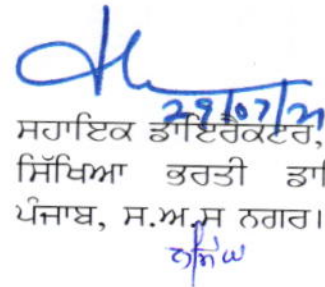 29/07/21
ਸਹਾਇਕ ਡਾਇਰੈਕਟਰ,
ਸਿੱਖਿਆ ਭਰਤੀ ਡਾ
ਪੰਜਾਬ, ਸ.ਅ.ਸ ਨਗਰ।